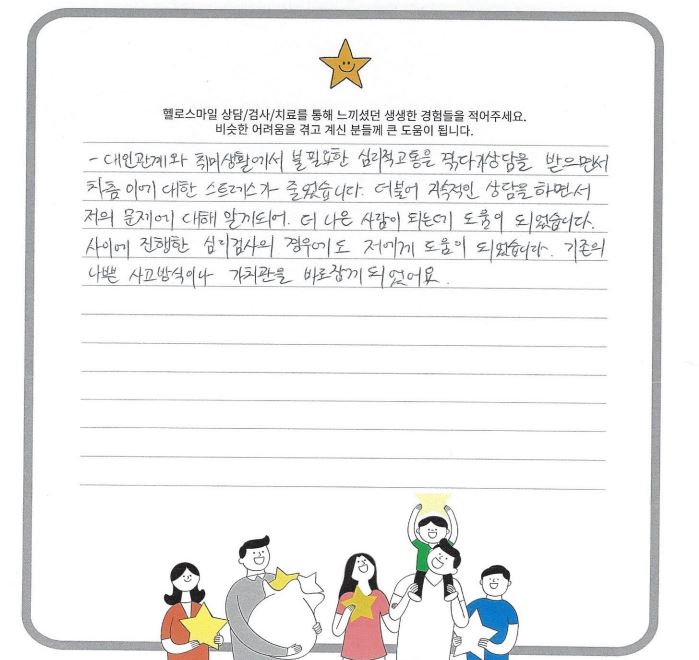 헬로스마일 상담/검사/치료를 통해 느끼셨던 생생한 경험들을 적어주세요.
비슷한 어려움을 겪고 계신 분들께 큰 도움이 됩니다.
- 대인관계와 취미생활에서 불필요한 심리적고통을 겪다가 상담을 받으면서
차츰 이에 대한 스트레스가 줄었습니다. 더불어 지속적인 상담을 하면서
저의 문제에 대해 알게되어. 더 나은 사람이 되는데 도움이 되었습니다.
사이에 진행한 심리검사의 경우에도 저에게 도움이 되었습니다. 기존의
나쁜 사고방식이나 가치관을 바로잡게 되었어요.